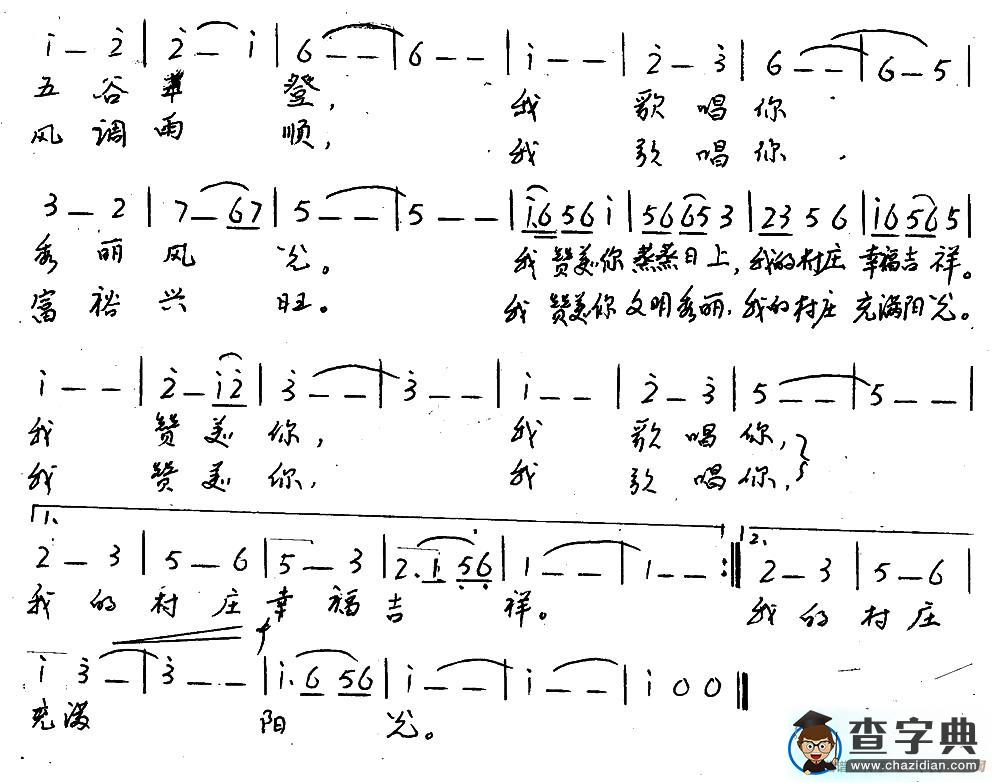 i — 2 | 2 — i | 6 — — | 6 — — | i — — | 2 — 3 | 6 — — | 6 — 5 |
五 谷 丰 登, 我 歌 唱 你
风 调 雨 顺, 我 歌 唱 你.
3 — 2 | 7 — 67 | 5 — — | 5 — — | i.6 56 i | 56 65 3 | 23 5 6 | i6 56 5 |
秀 丽 风 光。 我 赞美你 蒸蒸日上, 我的村庄 幸福吉祥。
富 裕 兴 旺。 我 赞美你 文明秀丽, 我的村庄 充满阳光。
i — — | 2 — i2 | 3 — — | 3 — — | i — — | 2 — 3 | 5 — — | 5 — — |
我 赞 美 你, 我 歌 唱 你,
我 赞 美 你, 我 歌 唱 你,
1. 2.
2 — 3 | 5 — 6 | 5 — 3 | 2. 1 56 | 1 — — | 1 — — :‖ 2 — 3 | 5 — 6 |
我 的 村 庄 幸 福 吉 祥。 我 的 村 庄
f
i 3 — | 3 — — | i. 6 56 | i — — | i — — | i 0 0 ‖
充 满 阳 光。
查字典
www.chazidian.com